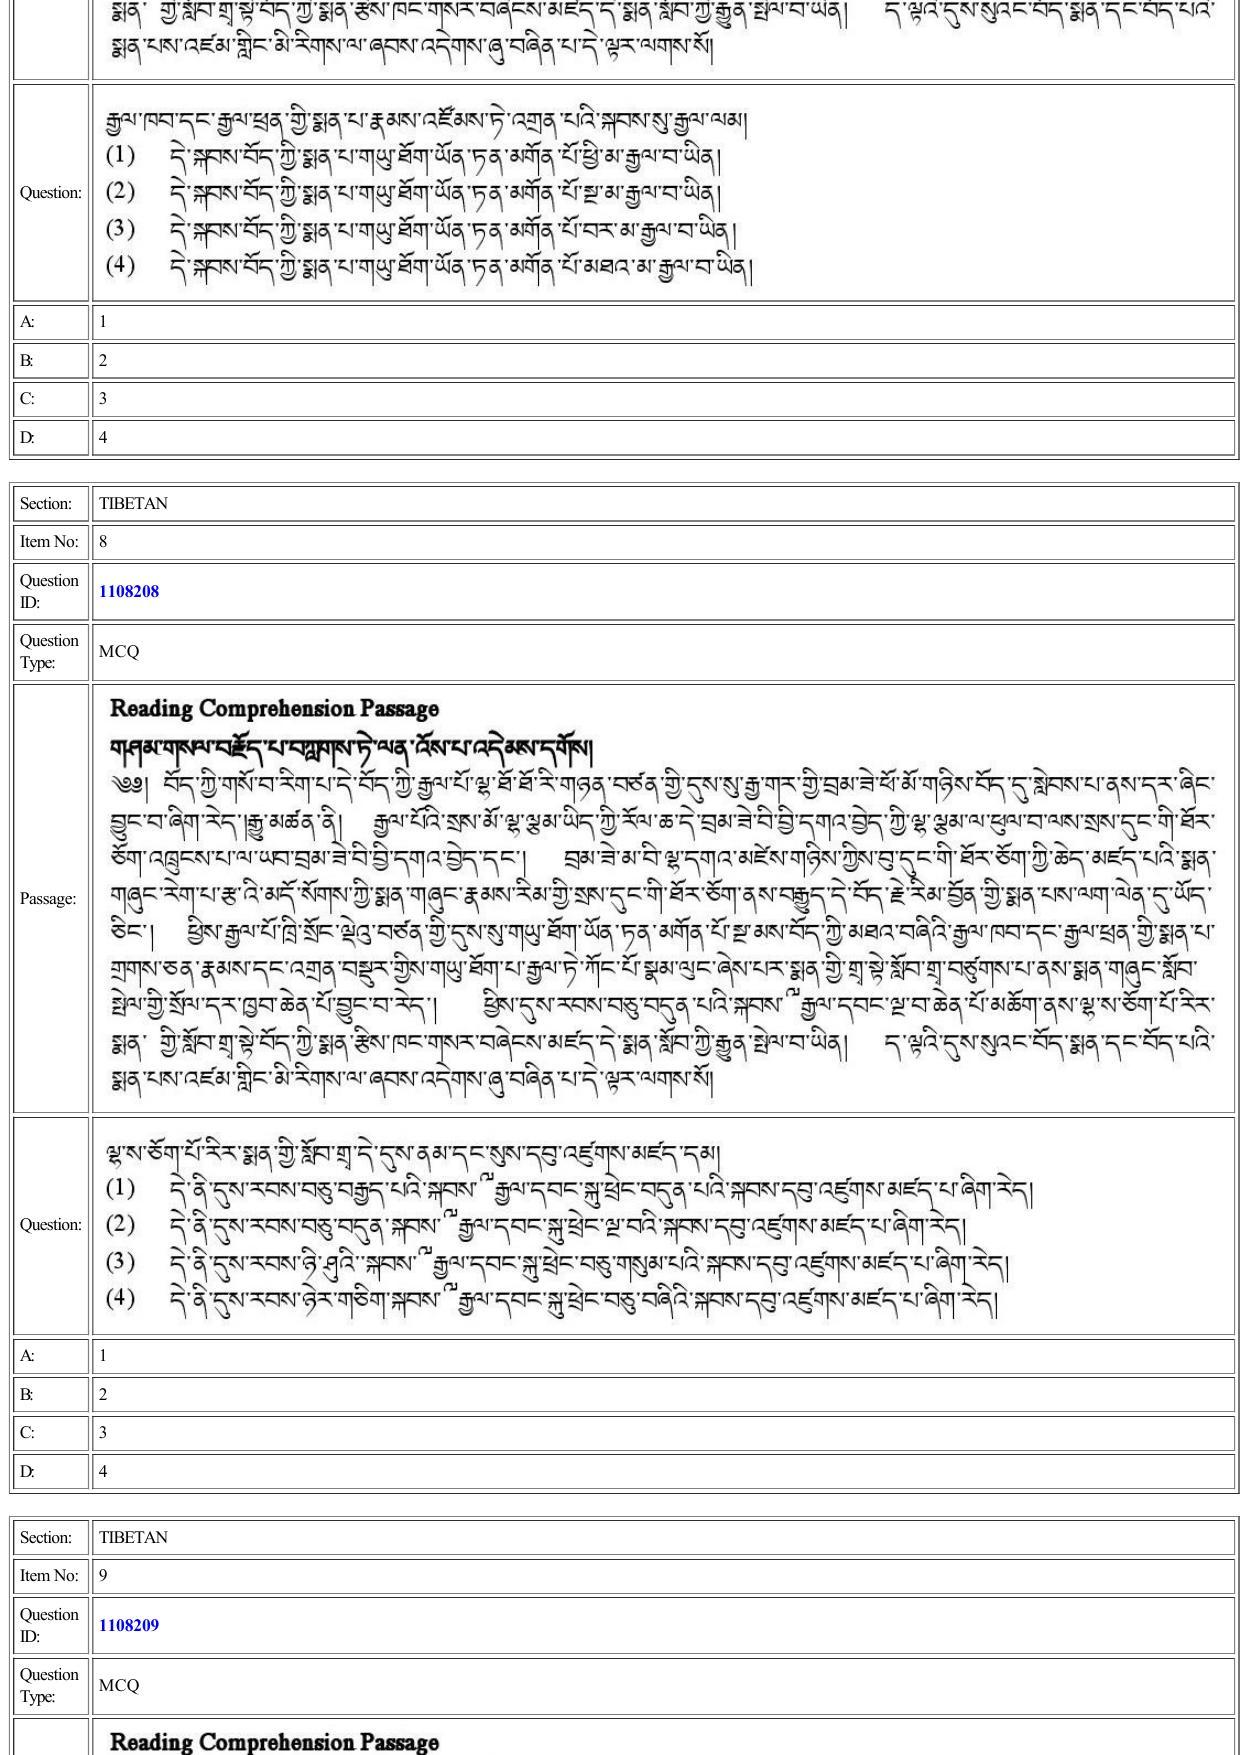 སྨན་ གྱི་སློབ་གྲྭ་སྟེ་བོད་ཀྱི་སྨན་རྩིས་ཁང་གསར་བཞེངས་མཛད་དེ་སྨན་སློབ་ཀྱི་རྒྱུན་སྤེལ་བ་ཡིན། ད་ལྟའི་དུས་སུའང་བོད་སྨན་དང་བོད་པའི་
སྨན་པས་འཛམ་གླིང་མི་རིགས་ལ་ཞབས་འདེགས་ཞུ་བཞིན་པ་དེ་ལྟར་ལགས་སོ།
Question:
རྒྱལ་ཁབ་དང་རྒྱལ་ཕྲན་གྱི་སྨན་པ་རྣམས་འཛོམས་ཏེ་འགྲན་པའི་སྐབས་སུ་རྒྱལ་ལམ།
(1) དེ་སྐབས་བོད་ཀྱི་སྨན་པ་གཡུ་ཐོག་ཡོན་ཏན་མགོན་པོ་ཕྱི་མ་རྒྱལ་བ་ཡིན།
(2) དེ་སྐབས་བོད་ཀྱི་སྨན་པ་གཡུ་ཐོག་ཡོན་ཏན་མགོན་པོ་སྔ་མ་རྒྱལ་བ་ཡིན།
(3) དེ་སྐབས་བོད་ཀྱི་སྨན་པ་གཡུ་ཐོག་ཡོན་ཏན་མགོན་པོ་བར་མ་རྒྱལ་བ་ཡིན།
(4) དེ་སྐབས་བོད་ཀྱི་སྨན་པ་གཡུ་ཐོག་ཡོན་ཏན་མགོན་པོ་མཐའ་མ་རྒྱལ་བ་ཡིན།
A: 1
B: 2
C: 3
D: 4
Section: TIBETAN
Item No: 8
Question ID: 1108208
Question Type: MCQ
Passage:
Reading Comprehension Passage
གཤམ་གསལ་བརྗོད་པ་བཀླགས་ཏེ་ལན་འོས་པ་འདེམས་དགོས།
༄༅། བོད་ཀྱི་གསོ་བ་རིག་པ་དེ་བོད་ཀྱི་རྒྱལ་པོ་ལྷ་ཐོ་ཐོ་རི་གཉན་བཙན་གྱི་དུས་སུ་རྒྱ་གར་གྱི་བྲམ་ཟེ་ཕོ་མོ་གཉིས་བོད་དུ་སླེབས་པ་ནས་དར་ཞིང་
བྱུང་བ་ཞིག་རེད་།རྒྱུ་མཚན་ནི། རྒྱལ་པོའི་སྲས་མོ་ལྷ་ལྕམ་ཡིད་ཀྱི་རོལ་ཆ་དེ་བྲམ་ཟེ་བི་བྱི་དགའ་བྱེད་ཀྱི་ལྷ་ལྕམ་ལ་ཕུལ་བ་ལས་སྲས་དུང་གི་ཐོར་
ཅོག་འཁྲུངས་པ་ལ་ཡབ་བྲམ་ཟེ་བི་བྱི་དགའ་བྱེད་དང་། བྲམ་ཟེ་མ་བི་ལྷ་དགའ་མཛེས་གཉིས་ཀྱིས་བུ་དུང་གི་ཐོར་ཅོག་ཀྱི་ཆེད་མཛད་པའི་སྨན་
གཞུང་རེག་པ་རྩ་འི་མདོ་སོགས་ཀྱི་སྨན་གཞུང་རྣམས་རིམ་གྱི་སྲས་དུང་གི་ཐོར་ཅོག་ནས་བརྒྱུད་དེ་བོད་རྗེ་རིམ་བྱོན་གྱི་སྨན་པས་ལག་ལེན་དུ་ཡོད་
ཅིང་། ཕྱིས་རྒྱལ་པོ་ཁྲི་སྲོང་ལྡེའུ་བཙན་གྱི་དུས་སུ་གཡུ་ཐོག་ཡོན་ཏན་མགོན་པོ་སྔ་མས་བོད་ཀྱི་མཐའ་བཞིའི་རྒྱལ་ཁབ་དང་རྒྱལ་ཕྲན་གྱི་སྨན་པ་
གྲགས་ཅན་རྣམས་དང་འགྲན་བསྡུར་གྱིས་གཡུ་ཐོག་པ་རྒྱལ་ཏེ་ཀོང་པོ་སྨན་ལུང་ཞེས་པར་སྨན་གྱི་གྲྭ་སྟེ་སློབ་གྲྭ་བཙུགས་པ་ནས་སྨན་གཞུང་སློབ་
སྤེལ་གྱི་སྲོལ་དར་ཁྱབ་ཆེན་པོ་བྱུང་བ་རེད་། ཕྱིས་དུས་རབས་བཅུ་བདུན་པའི་སྐབས་༸རྒྱལ་དབང་ལྔ་བ་ཆེན་པོ་མཆོག་ནས་ལྷ་ས་ཅོག་པོ་རིར་
སྨན་ གྱི་སློབ་གྲྭ་སྟེ་བོད་ཀྱི་སྨན་རྩིས་ཁང་གསར་བཞེངས་མཛད་དེ་སྨན་སློབ་ཀྱི་རྒྱུན་སྤེལ་བ་ཡིན། ད་ལྟའི་དུས་སུའང་བོད་སྨན་དང་བོད་པའི་
སྨན་པས་འཛམ་གླིང་མི་རིགས་ལ་ཞབས་འདེགས་ཞུ་བཞིན་པ་དེ་ལྟར་ལགས་སོ།
Question:
ལྷ་ས་ཅོག་པོ་རིར་སྨན་གྱི་སློབ་གྲྭ་དེ་དུས་ནམ་དང་སུས་དབུ་འཛུགས་མཛད་དམ།
(1) དེ་ནི་དུས་རབས་བཅུ་བརྒྱད་པའི་སྐབས་༸རྒྱལ་དབང་སྐུ་ཕྲེང་བདུན་པའི་སྐབས་དབུ་འཛུགས་མཛད་པ་ཞིག་རེད།
(2) དེ་ནི་དུས་རབས་བཅུ་བདུན་སྐབས་༸རྒྱལ་དབང་སྐུ་ཕྲེང་ལྔ་བའི་སྐབས་དབུ་འཛུགས་མཛད་པ་ཞིག་རེད།
(3) དེ་ནི་དུས་རབས་ཉི་ཤུའི་སྐབས་༸རྒྱལ་དབང་སྐུ་ཕྲེང་བཅུ་གསུམ་པའི་སྐབས་དབུ་འཛུགས་མཛད་པ་ཞིག་རེད།
(4) དེ་ནི་དུས་རབས་ཉེར་གཅིག་སྐབས་༸རྒྱལ་དབང་སྐུ་ཕྲེང་བཅུ་བཞིའི་སྐབས་དབུ་འཛུགས་མཛད་པ་ཞིག་རེད།
A: 1
B: 2
C: 3
D: 4
Section: TIBETAN
Item No: 9
Question ID: 1108209
Question Type: MCQ
Reading Comprehension Passage